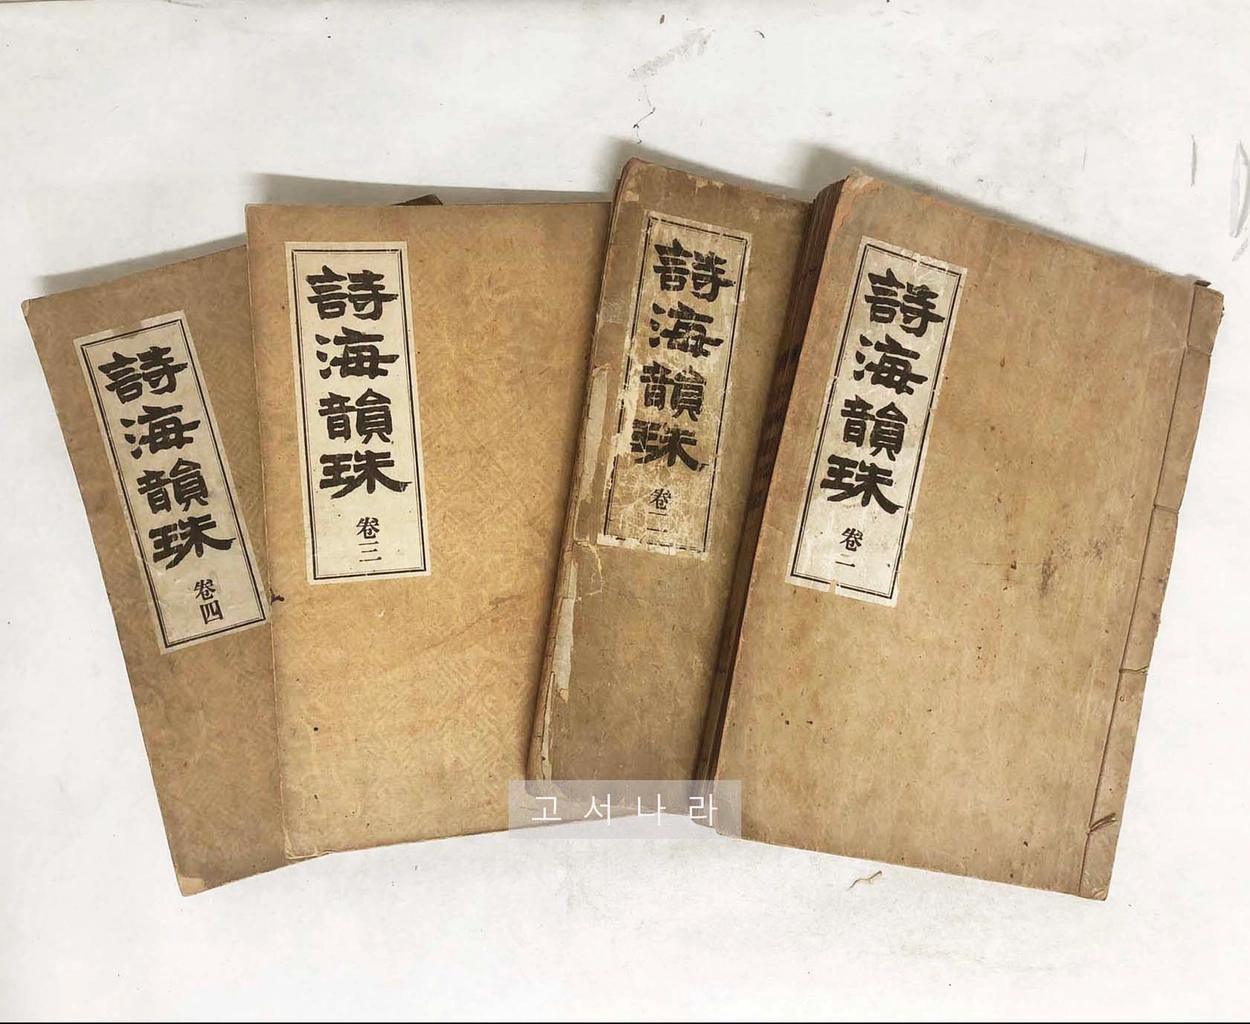 詩海韻珠
卷四
詩海韻珠
卷三
詩海韻珠
卷二
詩海韻珠
卷二
고서나라